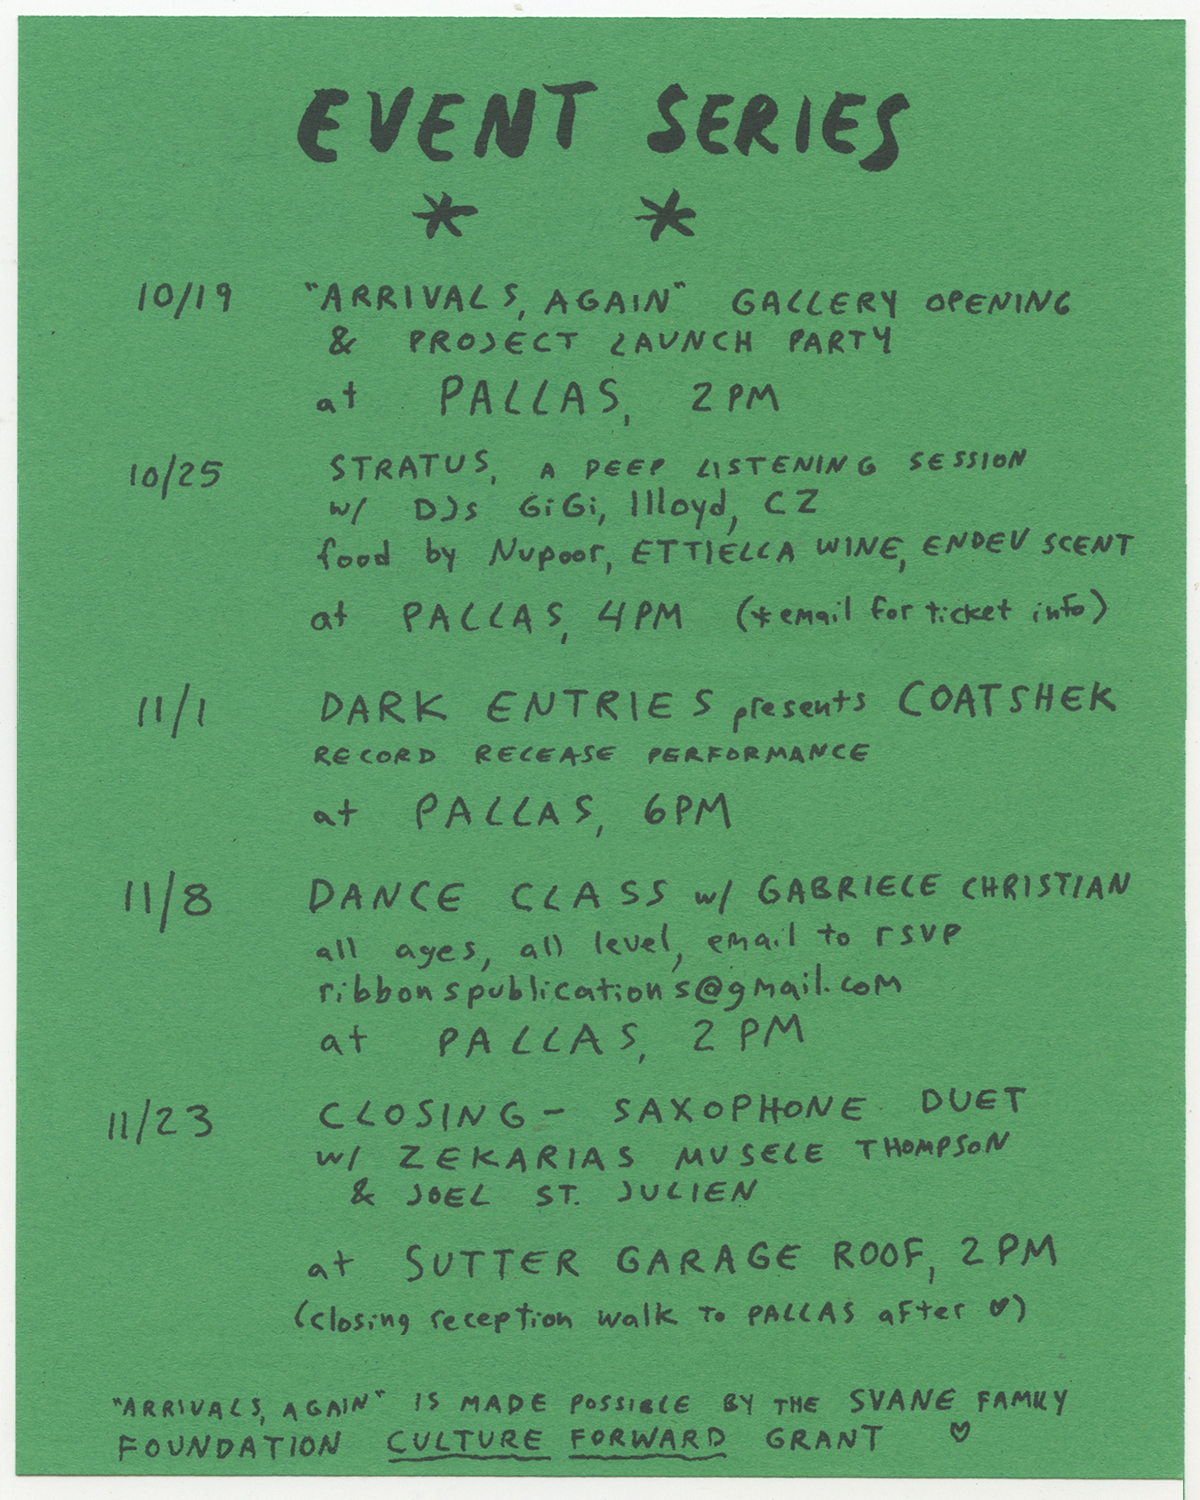 EVENT SERIES
* *
10/19 "ARRIVALS, AGAIN" GALLERY OPENING
& PROJECT LAUNCH PARTY
at PALLAS, 2PM
10/25 STRATUS, A DEEP LISTENING SESSION
w/ DJs GiGi, llloyd, CZ
food by Nupoor, ETTIELLA WINE, ENDEV SCENT
at PALLAS, 4PM (*email for ticket info)
11/1 DARK ENTRIES presents COATSHEK
RECORD RELEASE PERFORMANCE
at PALLAS, 6PM
11/8 DANCE CLASS w/ GABRIELE CHRISTIAN
all ages, all level, email to rsvp
ribbonspublications@gmail.com
at PALLAS, 2PM
11/23 CLOSING - SAXOPHONE DUET
w/ ZEKARIAS MUSELE THOMPSON
& JOEL ST. JULIEN
at SUTTER GARAGE ROOF, 2PM
(closing reception walk to PALLAS after ♥)
"ARRIVALS, AGAIN" IS MADE POSSIBLE BY THE SVANE FAMILY
FOUNDATION CULTURE FORWARD GRANT ♡